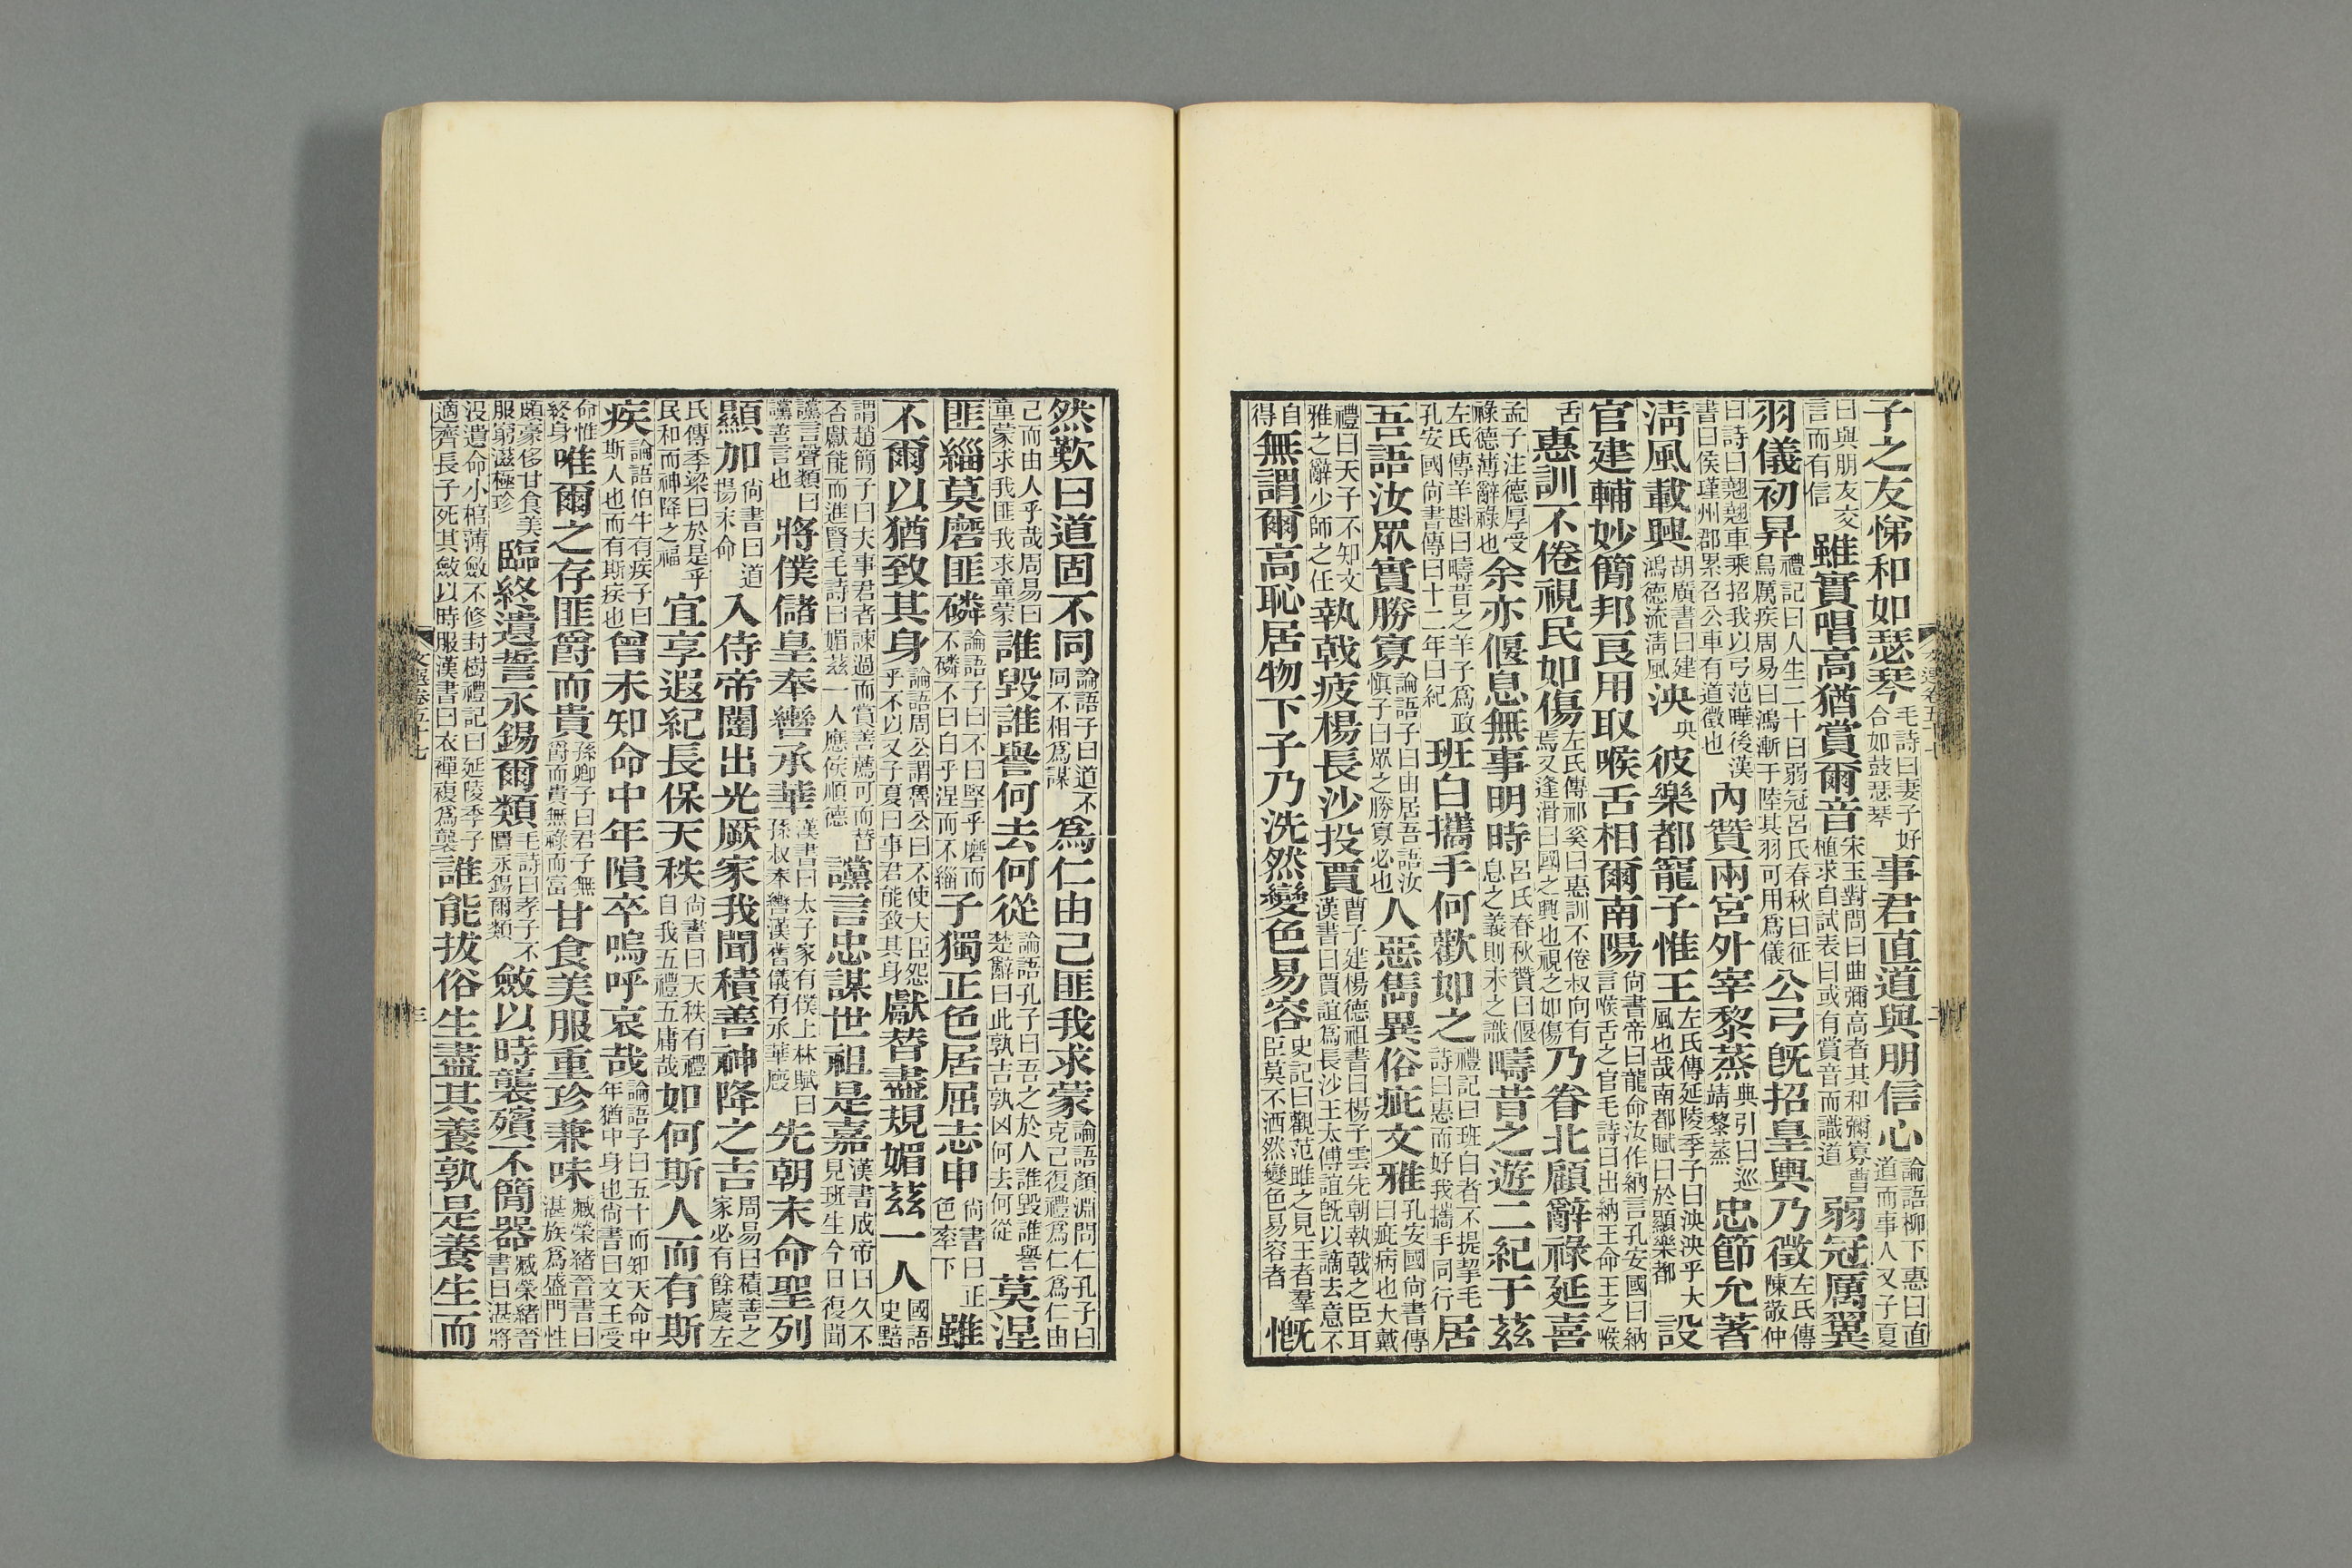 子之友悌和如瑟琴毛詩曰妻子好合如鼓瑟琴事君直道與朋信心論語柳下惠曰直道而事人又子夏
曰與朋友交言而有信雖實唱高猶賞爾音宋玉對問曰曲彌高者其和彌寡曹植求自試表曰或有賞音而識道弱冠厲翼
羽儀初昇禮記曰人生二十曰弱冠呂氏春秋曰征鳥厲疾周易曰鴻漸于陸其羽可用爲儀公弓旣招皇輿乃徵左氏傳陳敬仲
曰詩曰翹翹車乘招我以弓范曄後漢書曰侯瑾州郡累召公車有道徵也內贊兩宮外宰黎蒸典引曰巡靖黎蒸忠節允著
淸風載興胡廣書曰建鴻德流淸風泱央彼樂都寵子惟王左氏傳延陵季子曰泱泱乎大風也哉南都賦曰於顯樂都設
官建輔妙簡邦良用取喉舌相爾南陽尙書帝曰龍命汝作納言孔安國曰納言喉舌之官毛詩曰出納王命王之喉
舌惠訓不倦視民如傷左氏傳祁奚曰惠訓不倦叔向有焉又逢滑曰國之興也視之如傷乃眷北顧辭祿延喜
孟子注德厚受祿德薄辭祿也余亦偃息無事明時呂氏春秋贊曰偃息之義則未之識疇昔之遊二紀于茲
左氏傳羊斟曰疇昔之羊子爲政孔安國尙書傳曰十二年曰紀班白攜手何歡如之禮記曰班白者不提挈毛詩曰惠而好我攜手同行居
吾語汝眾實勝寡論語子曰由居吾語汝愼子曰眾之勝寡必也人惡雋異俗疵文雅孔安國尙書傳曰疵病也大戴
禮曰天子不知文雅之辭少師之任執戟疲楊長沙投賈曹子建楊德祖書曰楊子雲先朝執戟之臣耳漢書曰賈誼爲長沙王太傅誼旣以謫去意不
自得無謂爾高恥居物下子乃洗然變色易容史記曰觀范雎之見王者羣臣莫不洒然變色易容者慨
然歎曰道固不同論語子曰道不同不相爲謀爲仁由己匪我求蒙論語顏淵問仁孔子曰克己復禮爲仁爲仁由
己而由人乎哉周易曰童蒙求我匪我求童蒙誰毀誰譽何去何從論語孔子曰吾之於人誰毀誰譽楚辭曰此孰吉孰凶何去何從莫涅
匪緇莫磨匪磷論語子曰不曰堅乎磨而不磷不曰白乎涅而不緇子獨正色居屈志申尙書曰正色率下雖
不爾以猶致其身論語周公謂魯公曰不使大臣怨乎不以又子夏曰事君能致其身獻替盡規媚茲一人國語史黯
謂趙簡子曰夫事君者諫過而賞善薦可而替否獻能而進賢毛詩曰媚茲一人應侯順德讜言忠謀世祖是嘉漢書成帝曰久不見班生今日復聞
讜言聲類曰讜善言也將僕儲皇奉轡承華漢書曰太子家有僕上林賦曰孫叔奉轡漢舊儀有承華廄先朝末命聖列
顯加尙書曰道揚末命入侍帝闥出光厥家我聞積善神降之吉周易曰積善之家必有餘慶左
氏傳季梁曰於是乎民和而神降之福宜享遐紀長保天秩尙書曰天秩有禮自我五禮五庸哉如何斯人而有斯
疾論語伯牛有疾子曰斯人也而有斯疾也曾未知命中年隕卒嗚呼哀哉論語子曰五十而知天命中年猶中身也尙書曰文王受
命惟終身唯爾之存匪爵而貴孫卿子曰君子無爵而貴無祿而富甘食美服重珍兼味臧榮緒晉書曰湛族爲盛門性
頗豪侈甘食美服窮滋極珍臨終遺誓永錫爾類毛詩曰孝子不匱永錫爾類斂以時襲殯不簡器臧榮緒晉書曰湛將
沒遺命小棺薄斂不修封樹禮記曰延陵季子適齊長子死其斂以時服漢書曰衣襌複爲襲誰能拔俗生盡其養孰是養生而
文選卷五十七
三